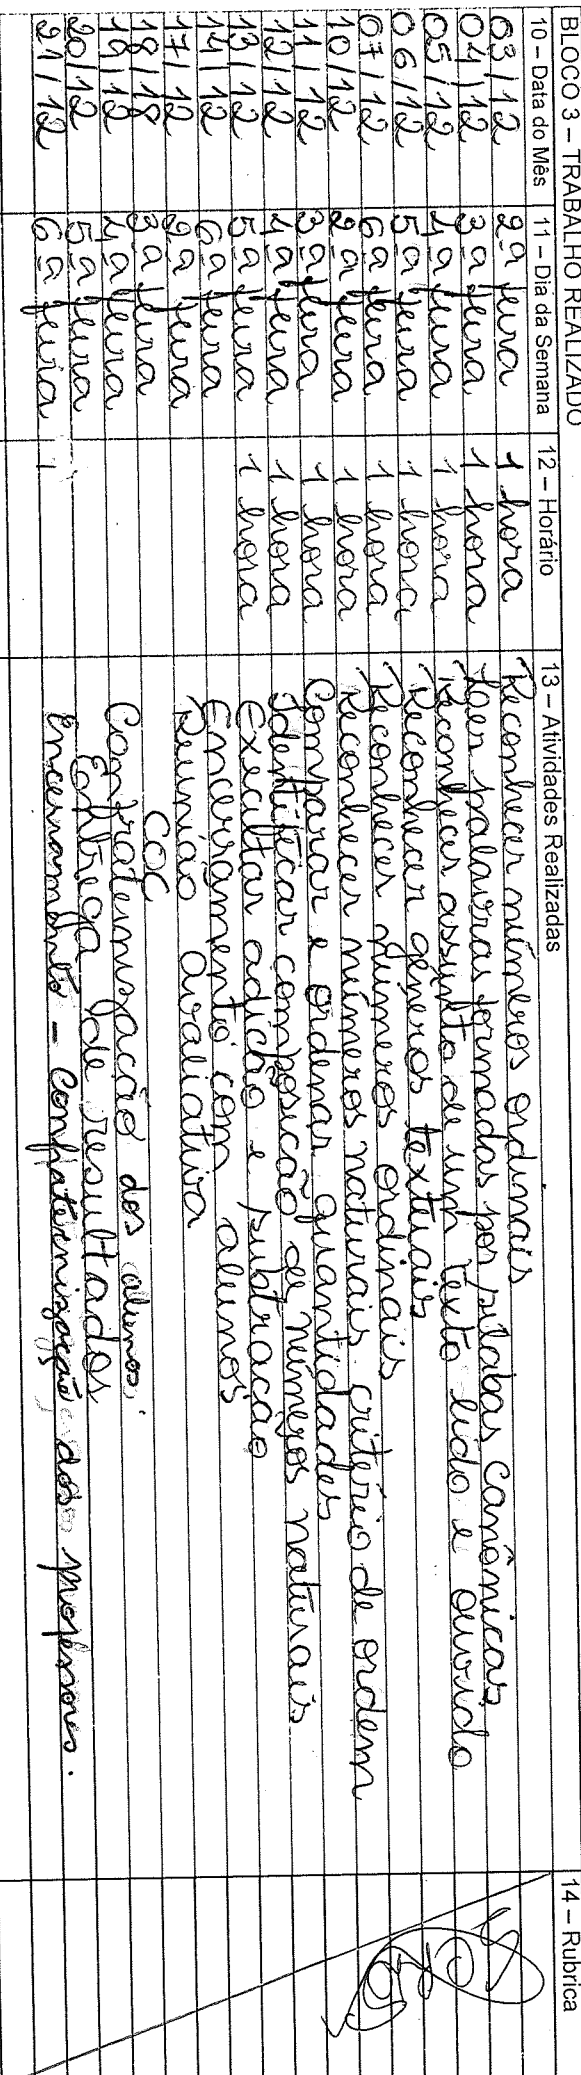 BLOCO 3 – TRABALHO REALIZADO
10 – Data do Mês 11 – Dia da Semana 12 – Horário 13 – Atividades Realizadas 14 – Rubrica
03/12 2ª feira 1 hora Reconhecer números ordinais
04/12 3ª feira 1 hora Ler palavras formadas por sílabas canônicas
05/12 4ª feira 1 hora Reconhecer assunto de um texto lido e ouvido
06/12 5ª feira 1 hora Reconhecer gêneros textuais
07/12 6ª feira 1 hora Reconhecer números ordinais
10/12 2ª feira 1 hora Reconhecer números naturais critério de ordem
11/12 3ª feira 1 hora Comparar e ordenar quantidades
12/12 4ª feira 1 hora Identificar composição de números naturais
13/12 5ª feira 1 hora Executar adição e subtração
14/12 6ª feira Encerramento com alunos
17/12 2ª feira Reunião avaliativa
18/18 3ª feira COC
19/12 4ª feira Confraternização dos alunos.
20/12 5ª feira Entrega de resultados
21/12 6ª feira Encerramento - Confraternização dos professores.